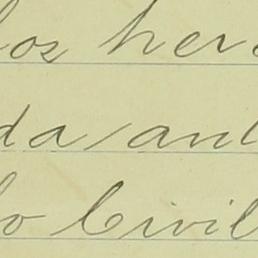 los here
da ant
lo Civil